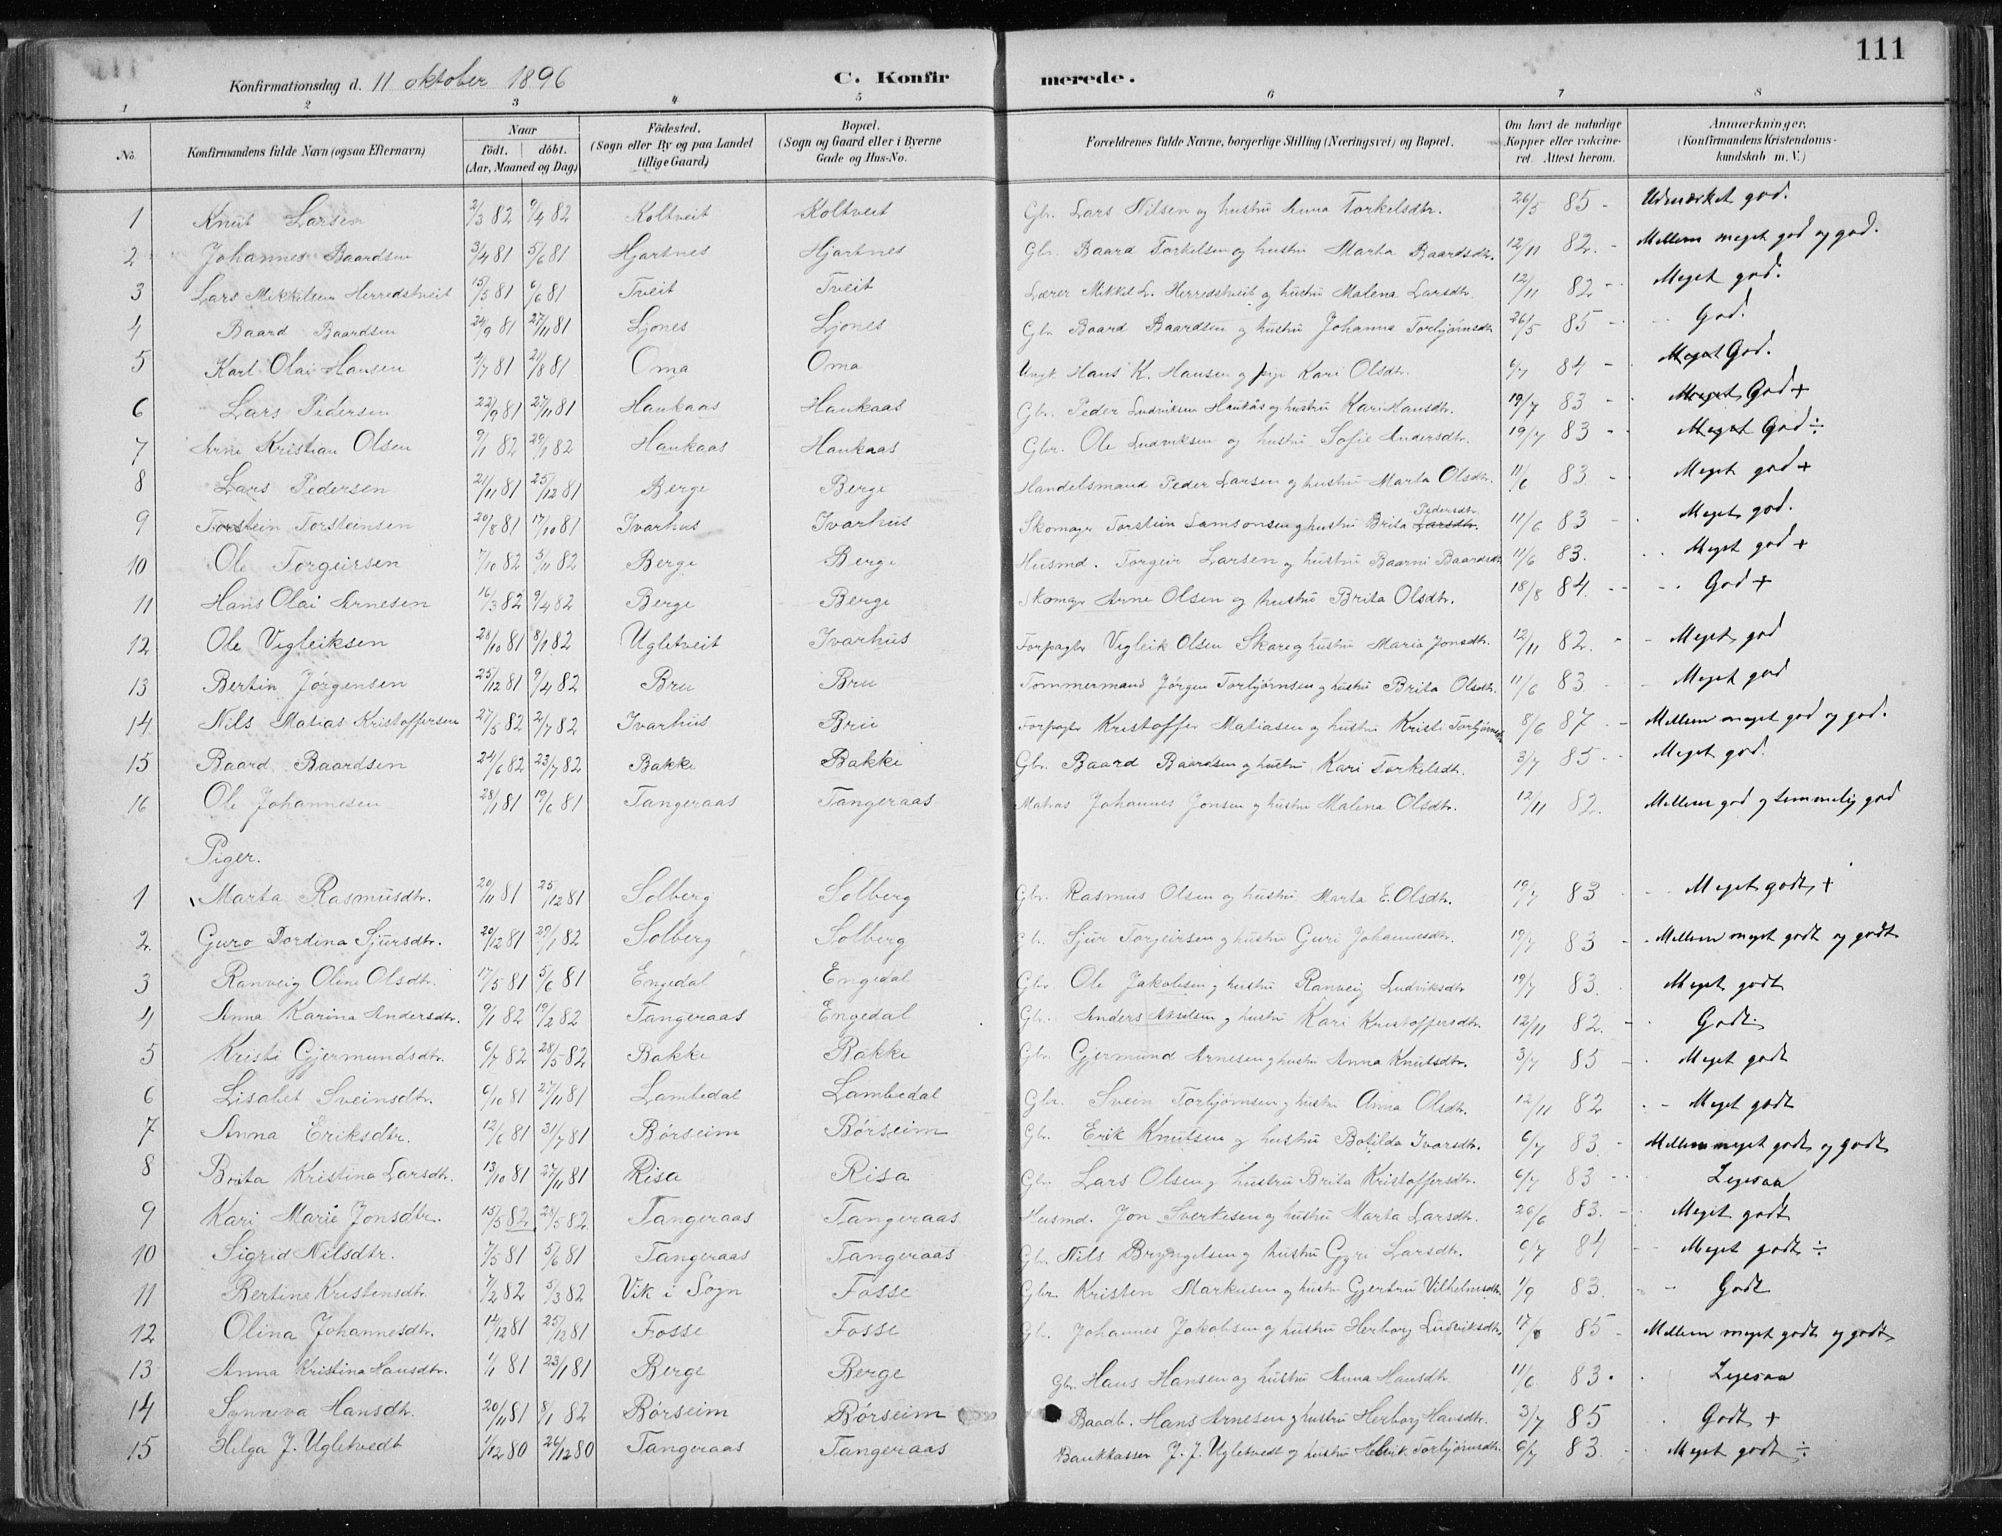 111
Konfirmationsdag d. 11 oktober 1896 C. Konfirmerede.
1 2 3 4 5 6 7 8
No. Konfirmandens fulde Navn (ogsaa Efternavn) Naar födt. döbt. (Aar, Maaned og Dag) Födested. (Sogn eller By og paa Landet tillige Gaard) Bopæl. (Sogn og Gaard eller i Byerne Gade og Hus-No. Forældrenes fulde Navne, borgerlige Stilling (Næringsvei) og Bopæl. Om havt de naturlige Kopper eller vakcineret. Attest herom. Anmærkninger. (Konfirmandens Kristendomskundskab m. V.)
1 Knut Larsen 2/3 82 9/4 82 Koltveit Koltveit Gbr. Lars Nilsen og hustru Anna Torkelsdtr. 26/5 85 - Udmærket god.
2 Johannes Baardsen 3/4 81 5/6 81 Hjartnes Hjartnes Gbr. Baard Torkelsen og hustru Marta Baardsdtr. 12/11 82. - Mellem meget god og god.
3 Lars Mikkelsen Herredstveit 15/5 81 6/6 81 Tveit Tveit Lærer Mikkel L. Herredstveit og hustru Malena Larsdtr. 12/11 82 - Meget god.
4 Baard Baardsen 24/9 81 27/11 81 Ljones Ljones Gbr Baard Baardsen og hustru Johanna Torbjørnsdtr 26/5 85 - God.
5 Karl Olai Hansen 4/7 81 21/8 81 Oma Oma Ungk. Hans K. Hansen og pige Kari Olsdtr. 6/7 84 - Meget God.
6 Lars Pedersen 22/9 81 27/11 81 Haukaas Haukaas Gbr. Peder Ludviksen Haukås og hustru Kari Hansdtr. 19/7 83 - Meget God +
7 Arne Kristian Olsen 9/1 82 29/1 82 Haukaas Haukaas Gbr. Ole Ludviksen og hustru Sofie Andersdtr. 19/7 83 - Meget God ÷
8 Lars Pedersen 21/11 81 25/12 81 Berge Berge Handelsmand Peder Larsen og hustru Marta Olsdtr. 11/6 83 - Meget god +
9 Torstein Torsteinsen 20/8 81 17/10 81 Ivarhus Ivarhus Skomager Torstein Samsonsen og hustru Brita Larsdtr. Pedersdtr. 11/6 83 - Meget god.
10 Ole Torgeirsen 7/10 82 5/11 82 Berge Berge Husmd. Torgeir Larsen og hustru Baarni Baardsdtr 11/6 83. Meget god +
11 Hans Olai Arnesen 16/3 82 9/4 82 Berge Berge Skomager Arne Olsen og hustru Brita Olsdtr. 18/8 84. - God +
12 Ole Vigleiksen 28/10 81 8/1 82 Ugletveit Ivarhus Forpagter Vigleik Olsen Skare og hustru Maria Jonsdtr. 12/11 82. - Meget god
13 Bertin Jørgensen 25/12 81 9/4 82 Bru Bru Tommermand Jørgen Torbjørnsen og hustru Brita Olsdtr. 11/6 83 - Meget god
14 Nils Matias Kristoffersen 27/5 82 2/7 82 Ivarhus Bru Forpagter Kristoffer Matiasen og hustru Kristi Torbjørnsdtr 8/6 87 - Mellem meget god og god.
15 Baard Baardsen 24/6 82 23/7 82 Bakke Bakke Gbr. Baard Baardsen og hustru Kari Torkelsdtr. 3/7 85 - Meget god.
16 Ole Johannesen 28/1 81 19/6 81 Tangeraas Tangeraas Matros Johannes Jonsen og hustru Malena Olsdtr. 12/11 82. Mellem god og temmelig god
Piger.
1 Marta Rasmusdtr. 20/11 81 25/12 81 Solberg Solberg Gbr. Rasmus Olsen og hustru Marta E. Olsdtr. 19/7 83 - Meget godt +
2. Guro Dordina Sjursdtr. 20/12 81 29/1 82 Solberg Solberg Gbr. Sjur Torgeirsen og hustru Guri Johannesdtr. 19/7 83 - Mellem meget godt og godt
3 Ranveig Oline Olsdtr. 17/5 81 5/6 81 Engedal Engedal Gbr. Ole Jakobsen og hustru Ranveig Ludviksdtr 19/7 83. Meget godt
4 Anna Karina Andersdtr. 9/1 82 19/2 82 Tangeraas Engedal Gbr. Anders Akselsen og hustru Kari Kristoffersdtr. 12/11 82. - Godt.
5 Kristi Gjermundsdtr. 6/7 82 28/5 82 Bakke Bakke Gbr Gjermund Arnesen og hustru Anna Knutsdtr. 3/7 85 - Meget godt
6 Lisabet Sveinsdtr. 6/10 81 27/11 81 Lambedal Lambedal Gbr. Svein Torbjørnsen og hustru Anna Olsdtr. 12/11 82 - Meget godt
7 Anna Eriksdtr. 12/6 81 31/7 81 Børseim Børseim Gbr. Erik Knutsen og hustru Botilda Ivarsdtr. 6/7 83 - Mellem meget godt og godt
8 Brita Kristina Larsdtr. 13/10 81 27/11 81 Risa Risa Gbr. Lars Olsen og hustru Brita Kristoffersdtr. 6/7 83 - Ligesaa
9 Kari Marie Jonsdtr. 15/5 82 28/5 82 Tangeraas Tangeraas Husmd. Jon Sverkesen og hustru Marta Larsdtr. 26/6 83. - Meget godt
10 Sigrid Nilsdtr. 7/5 81 5/6 81 Tangeraas Tangeraas Gbr. Nils Bryngelsen og hustru Gyri Larsdtr. 6/7 84 - Meget godt ÷
11 Bertine Kristensdtr. 7/2 82 5/3 82 Vik i Sogn Fosse Gbr. Kristen Markusen og hustru Gjertru Vilhelmsdtr. 1/9 83. - Godt
12 Olina Johannesdtr. 14/12 81 25/12 81 Fosse Fosse Gbr. Johannes Jakobsen og hustru Herborg Ludviksdtr. 17/8 85 - Mellem meget godt og godt
13 Anna Kristina Hansdtr. 1/1 81 23/1 81 Berge Berge Gbr. Hans Hansen og hustru Anna Hansdtr 11/6 83. Ligesaa
14 Synneva Hansdtr. 20/11 81 8/1 82 Børseim Børseim Baadb. Hans Arnesen og hustru Herborg Hansdtr. 3/7 85 Godt +
15 Helga J. Ugletvedt 1/12 80 26/12 80 Tangeraas Tangeraas Bankkasser J. J. Ugletvedt og hustru Helvik Torbjørnsdtr. 6/7 83. - Meget godt ÷